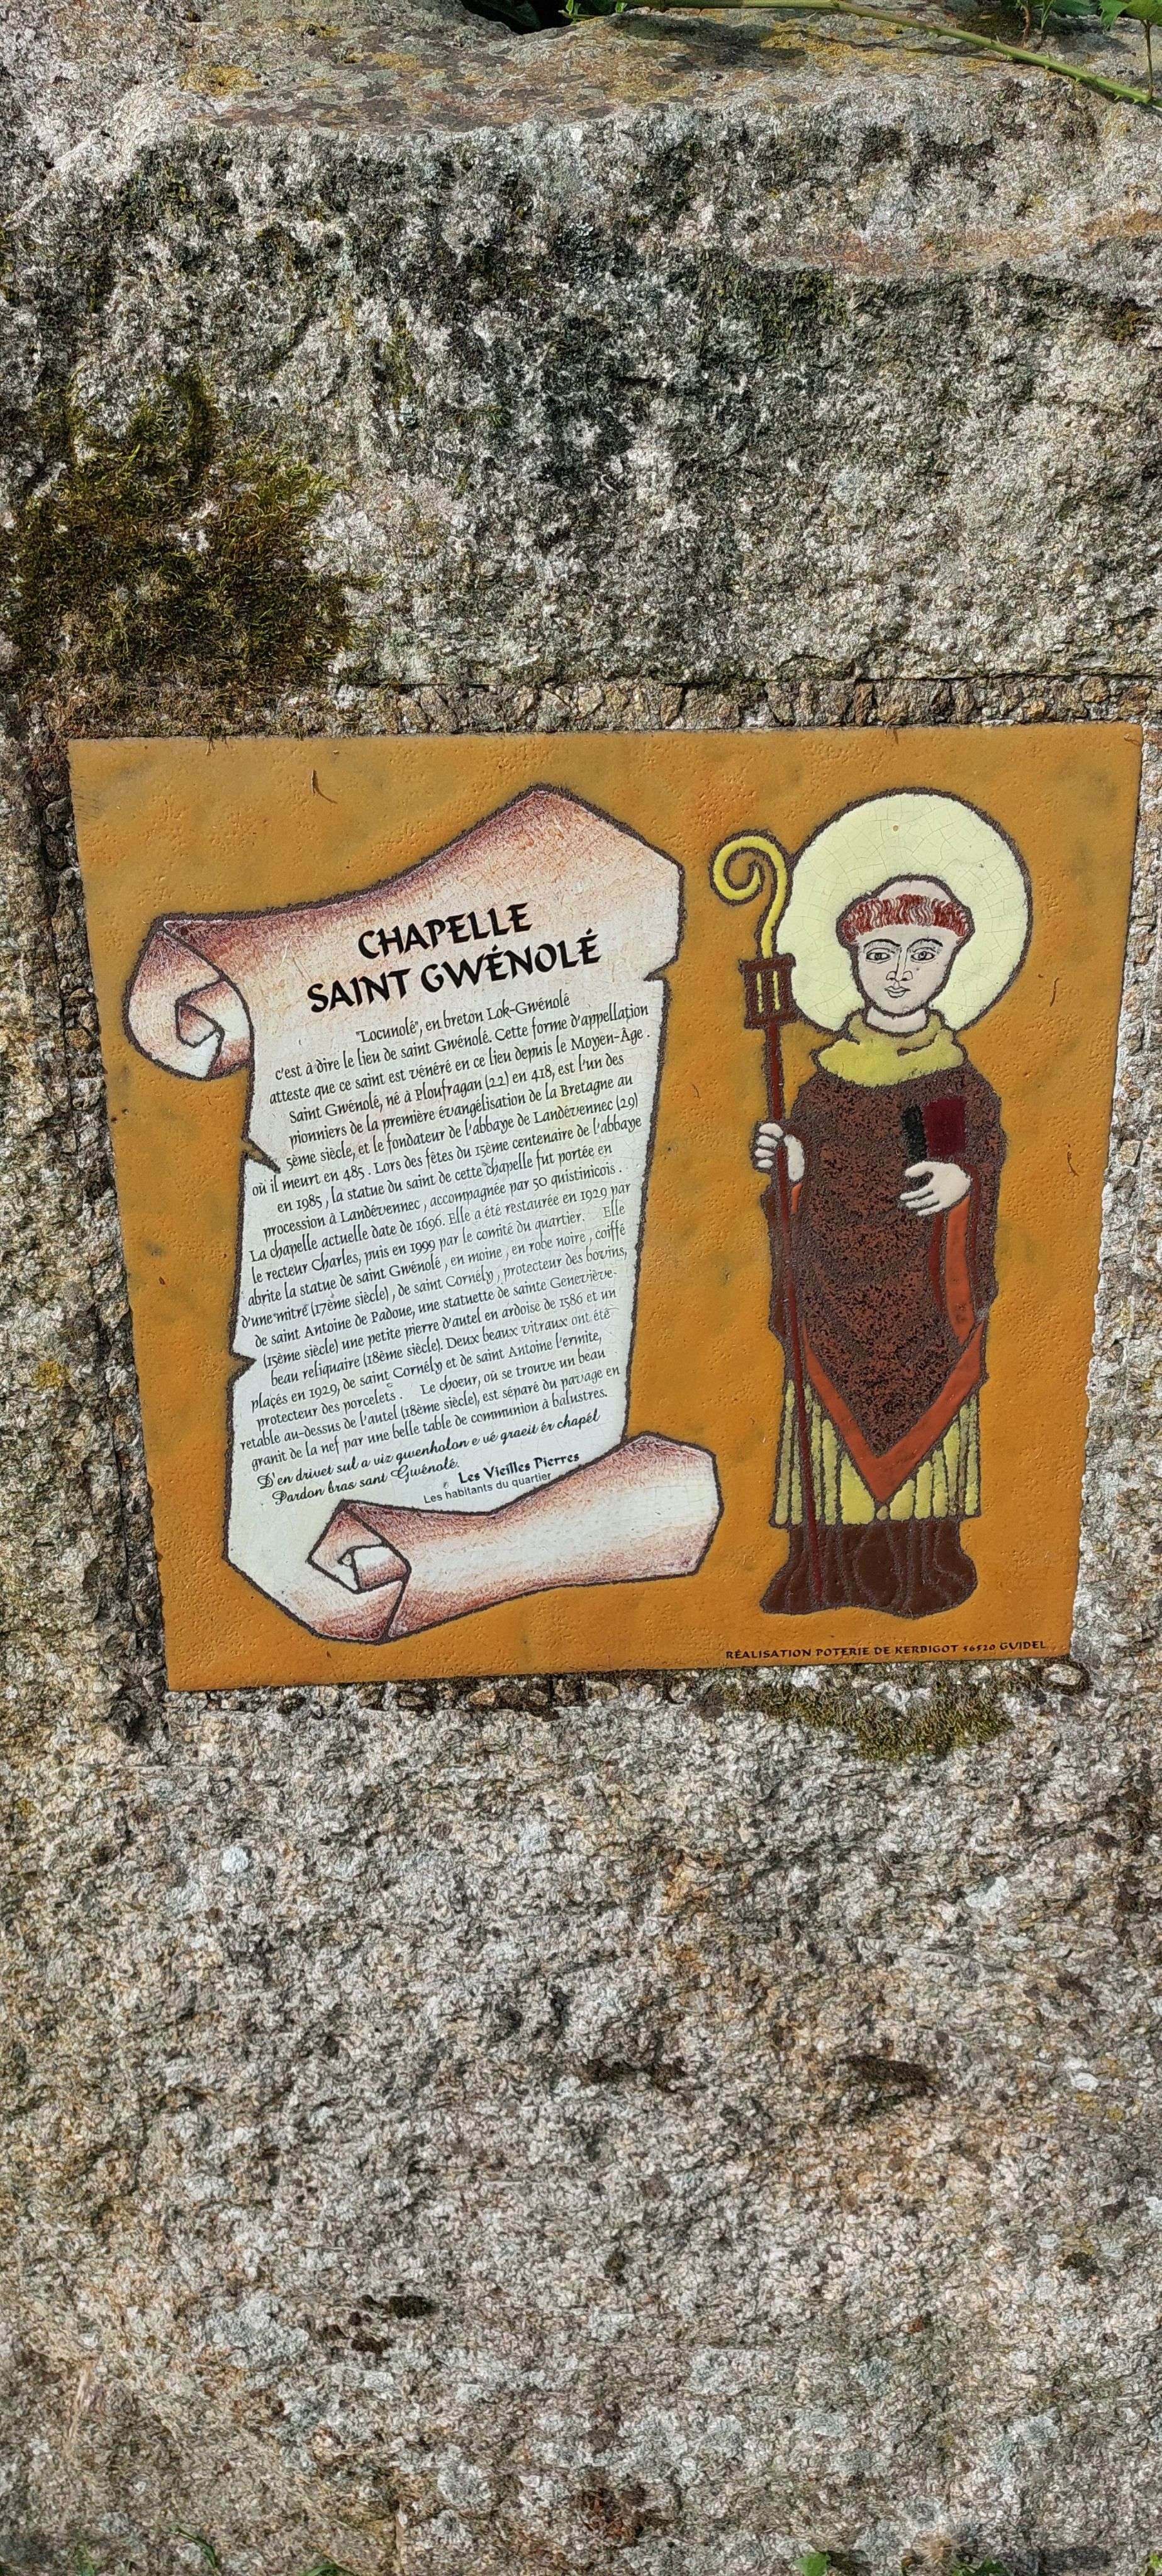 CHAPELLE
SAINT GWÉNOLÉ
"Locunolé", en breton Lok-Gwénolé
c'est à dire le lieu de saint Gwénolé. Cette forme d'appellation
atteste que ce saint est vénéré en ce lieu depuis le Moyen-Âge.
Saint Gwénolé, né à Ploufragan (22) en 418, est l'un des
pionniers de la première évangélisation de la Bretagne au
5ème siècle, et le fondateur de l'abbaye de Landévennec (29)
où il meurt en 485. Lors des fêtes du 15ème centenaire de l'abbaye
en 1985, la statue du saint de cette chapelle fut portée en
procession à Landévennec, accompagnée par 50 quistinicois.
La chapelle actuelle date de 1696. Elle a été restaurée en 1929 par
le recteur Charles, puis en 1999 par le comité du quartier. Elle
abrite la statue de saint Gwénolé, en moine, en robe noire, coiffé
d'une mitre (17ème siècle), de saint Cornély, protecteur des bovins,
de saint Antoine de Padoue, une statuette de sainte Geneviève
(15ème siècle) une petite pierre d'autel en ardoise de 1586 et un
beau reliquaire (18ème siècle). Deux beaux vitraux ont été
placés en 1929, de saint Cornély et de saint Antoine l'ermite,
protecteur des porcelets. Le choeur, où se trouve un beau
retable au-dessus de l'autel (18ème siècle), est séparé du pavage en
granit de la nef par une belle table de communion à balustres.
D'en drivet sul a viz gwenholon e vé graeit ér chapél
Pardon bras sant Gwénolé.
Les Vieilles Pierres
Les habitants du quartier
RÉALISATION POTERIE DE KERBIGOT 56520 GUIDEL